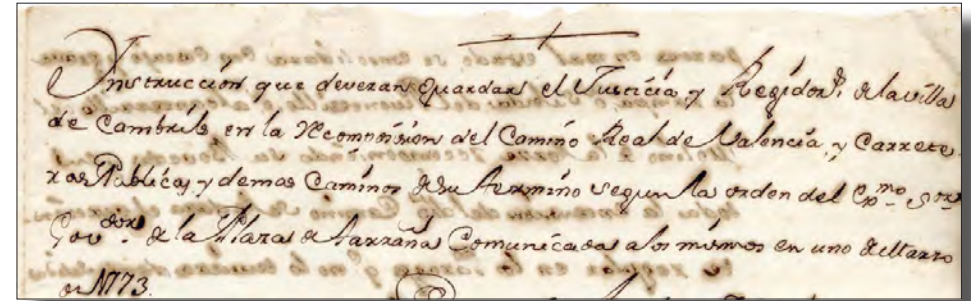 Instruccion que deveran Guardar el Justicia y Regidors. de la villa
de Cambrils en la Recomposision del Camino Real de Valencia, y Carrete-
ras Publicas, y demas Caminos de su termino segun la orden del Exmo. Sor.
Govdor. de la Plaza de Tarragna Comunicada a los mismos en uno de Marzo
de 1773.